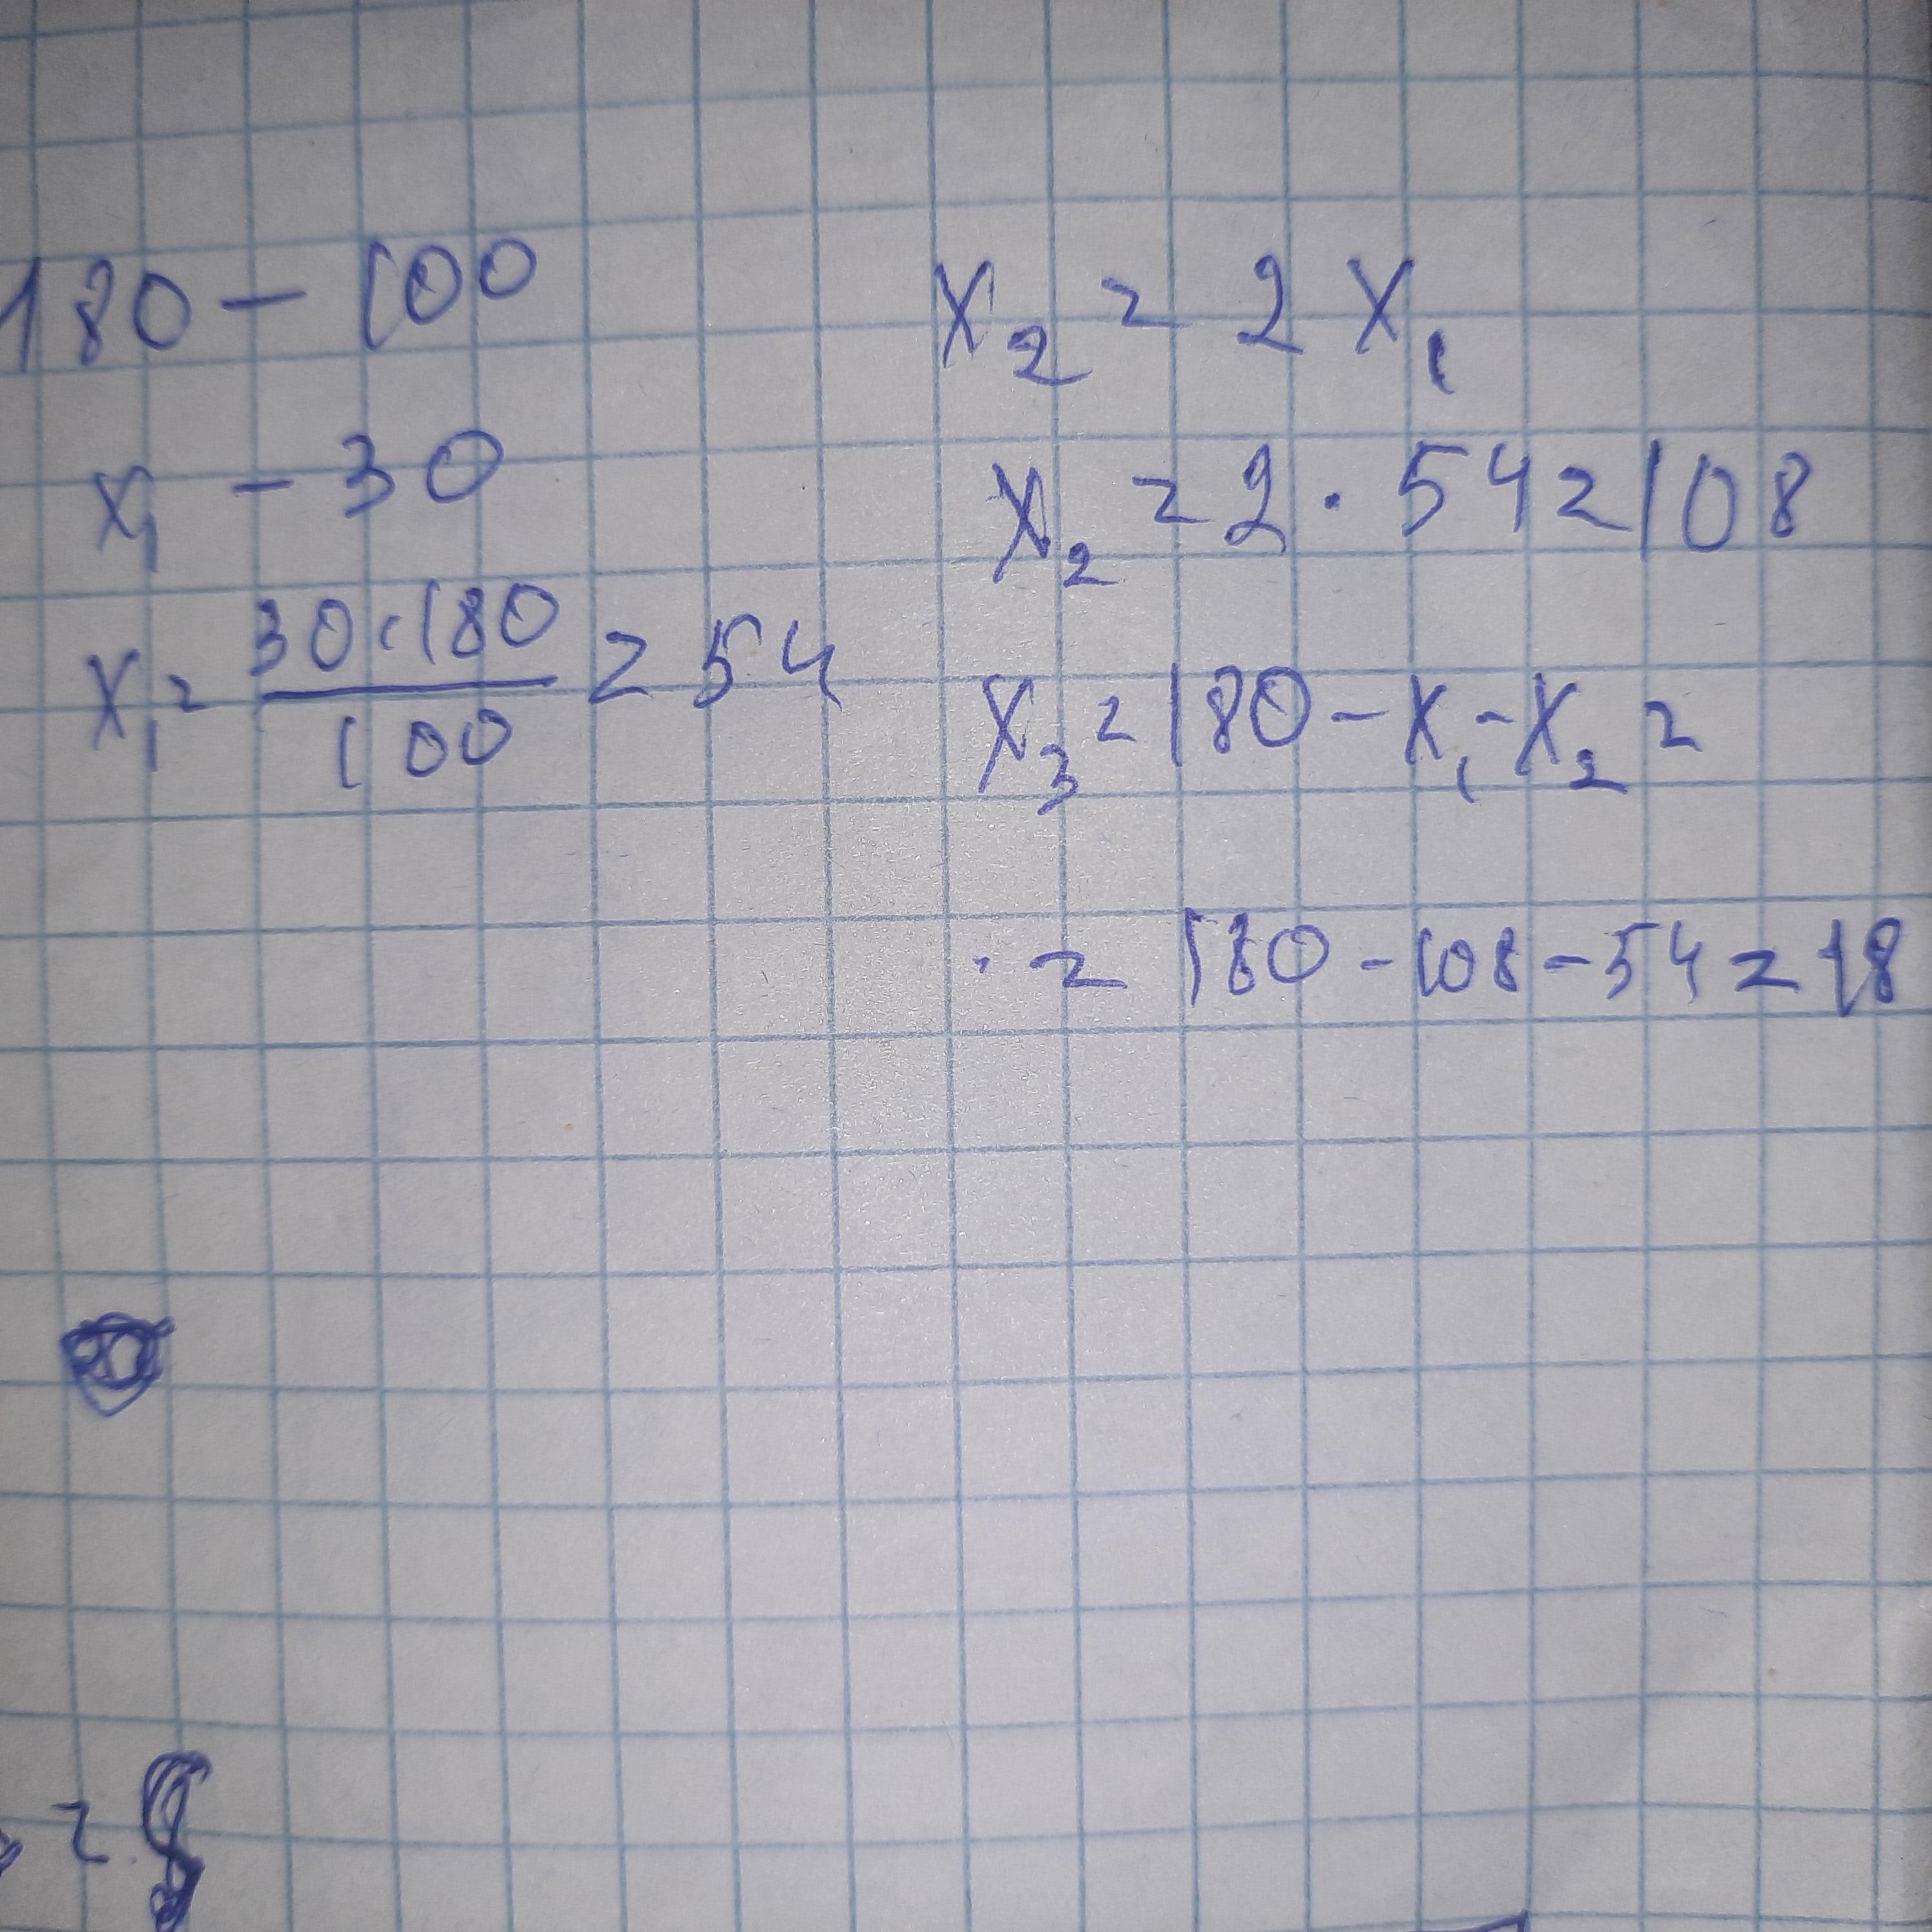 180 - 100
x₁ - 30
x₁ = 30·180/100 = 54
x₂ = 2x₁
x₂ = 2 · 54 = 108
x₃ = 180 - x₁ - x₂ =
= 180 - 108 - 54 = 18
=